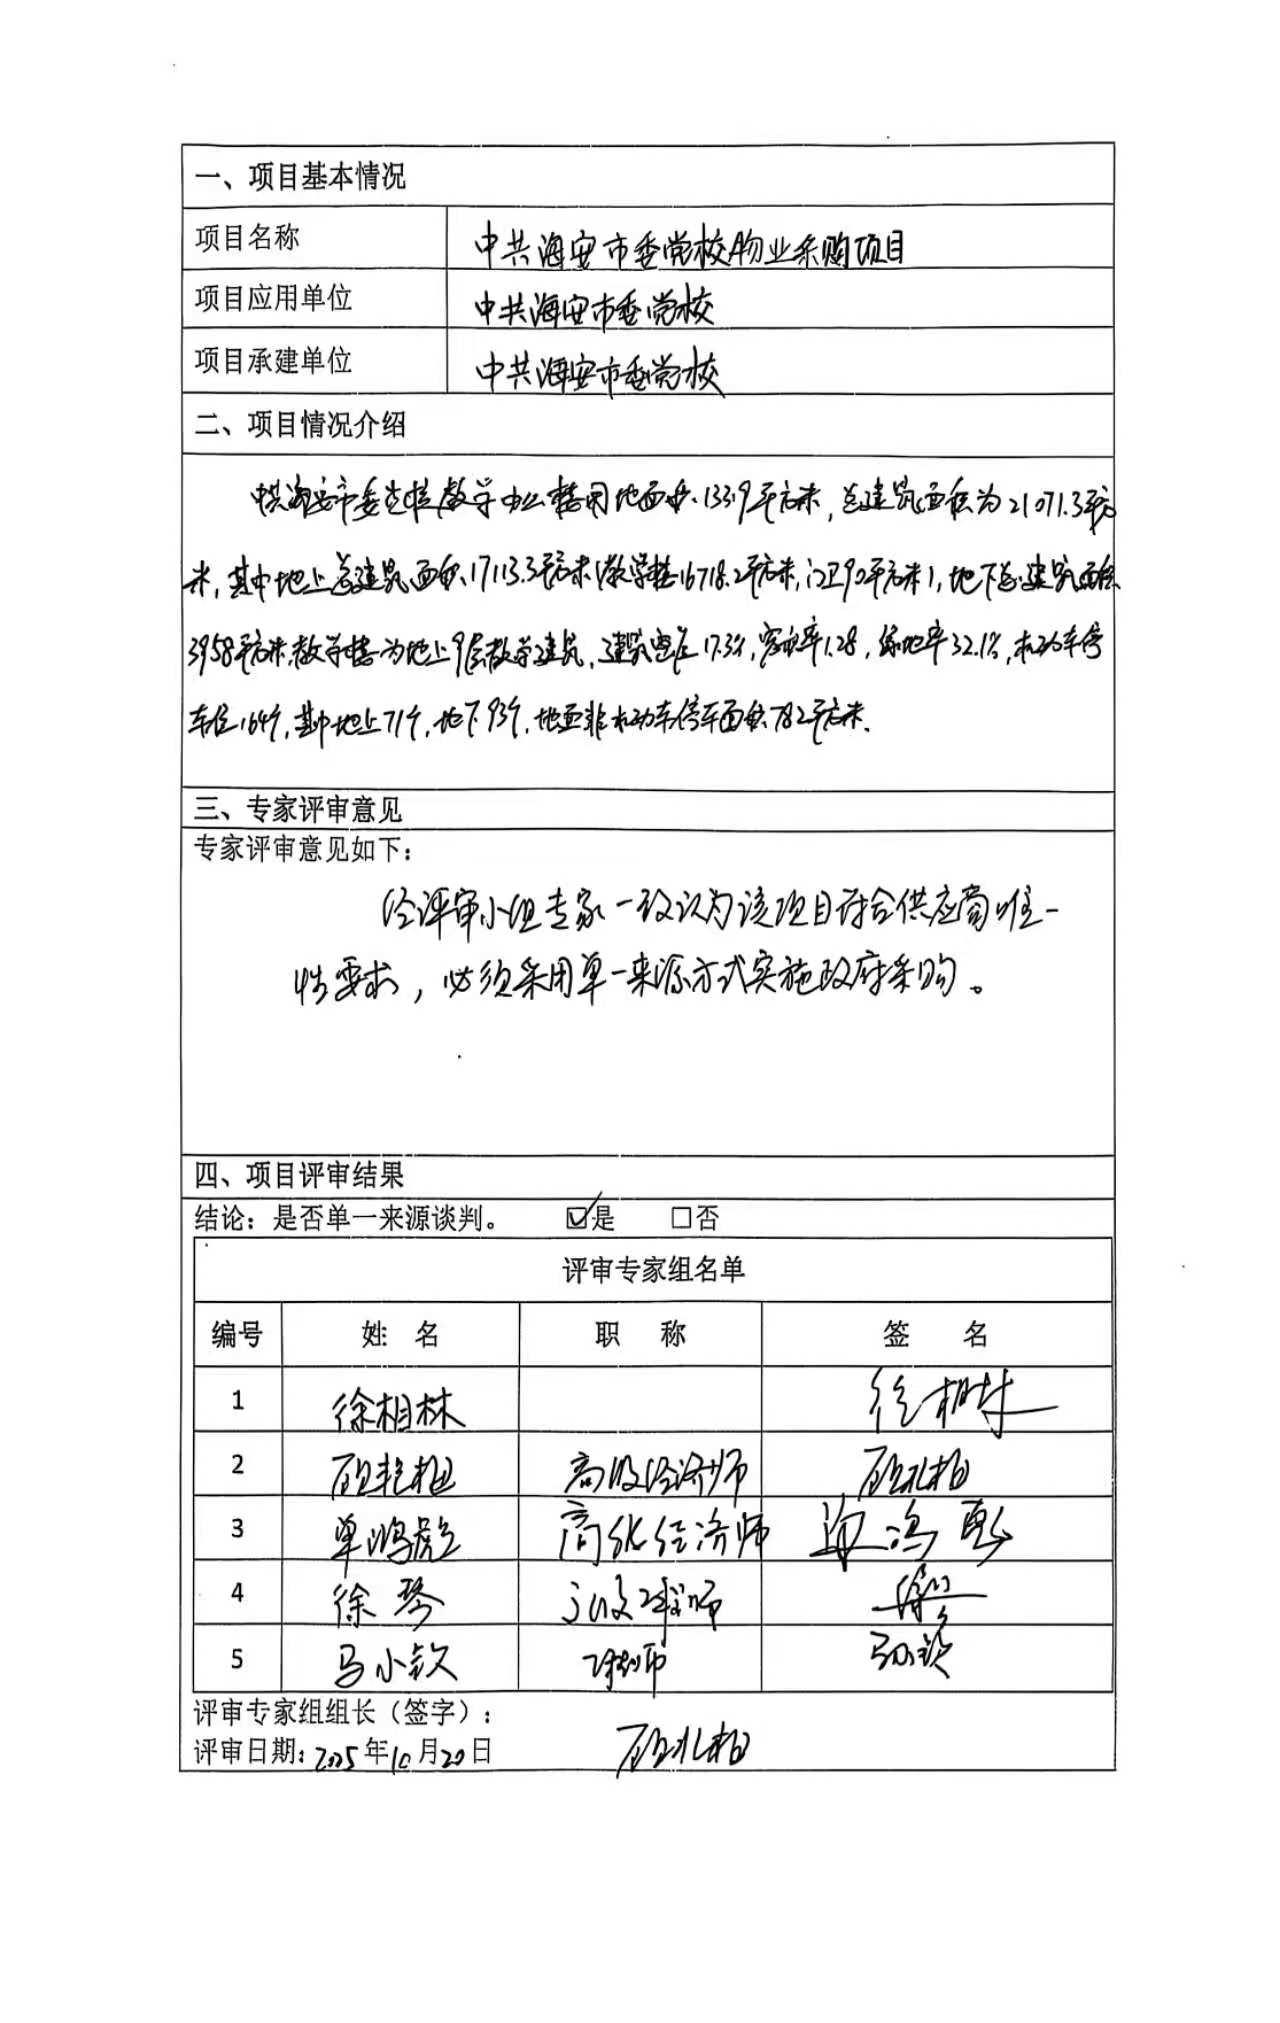 一、项目基本情况
项目名称 中共海安市委党校物业采购项目
项目应用单位 中共海安市委党校
项目承建单位 中共海安市委党校
二、项目情况介绍
中共海安市委党校教学办公楼用地面积13319平方米,总建筑面积为21071.3平方
米,其中地上总建筑面积17113.3平方米(教学楼16718.2平方米,门卫90平方米),地下总建筑面积
3958平方米,教学楼为地上9层教学建筑,建筑密度17.3%,容积率1.28,绿地率32.1%,机动车停
车位164个,其中地上71个,地下93个,地面非机动车停车面积782平方米.
三、专家评审意见
专家评审意见如下:
经评审小组专家一致认为该项目符合供应商唯一
性要求,必须采用单一来源方式实施政府采购。
四、项目评审结果
结论:是否单一来源谈判。 ☑是 □否
评审专家组名单
编号 姓 名 职 称 签 名
1 徐相林 徐相林
2 高级经济师
3 单鸿彪 高级经济师
4 徐琴 工程师 徐琴
5 马小钦 工程师 马小钦
评审专家组组长(签字):
评审日期:2025年10月20日